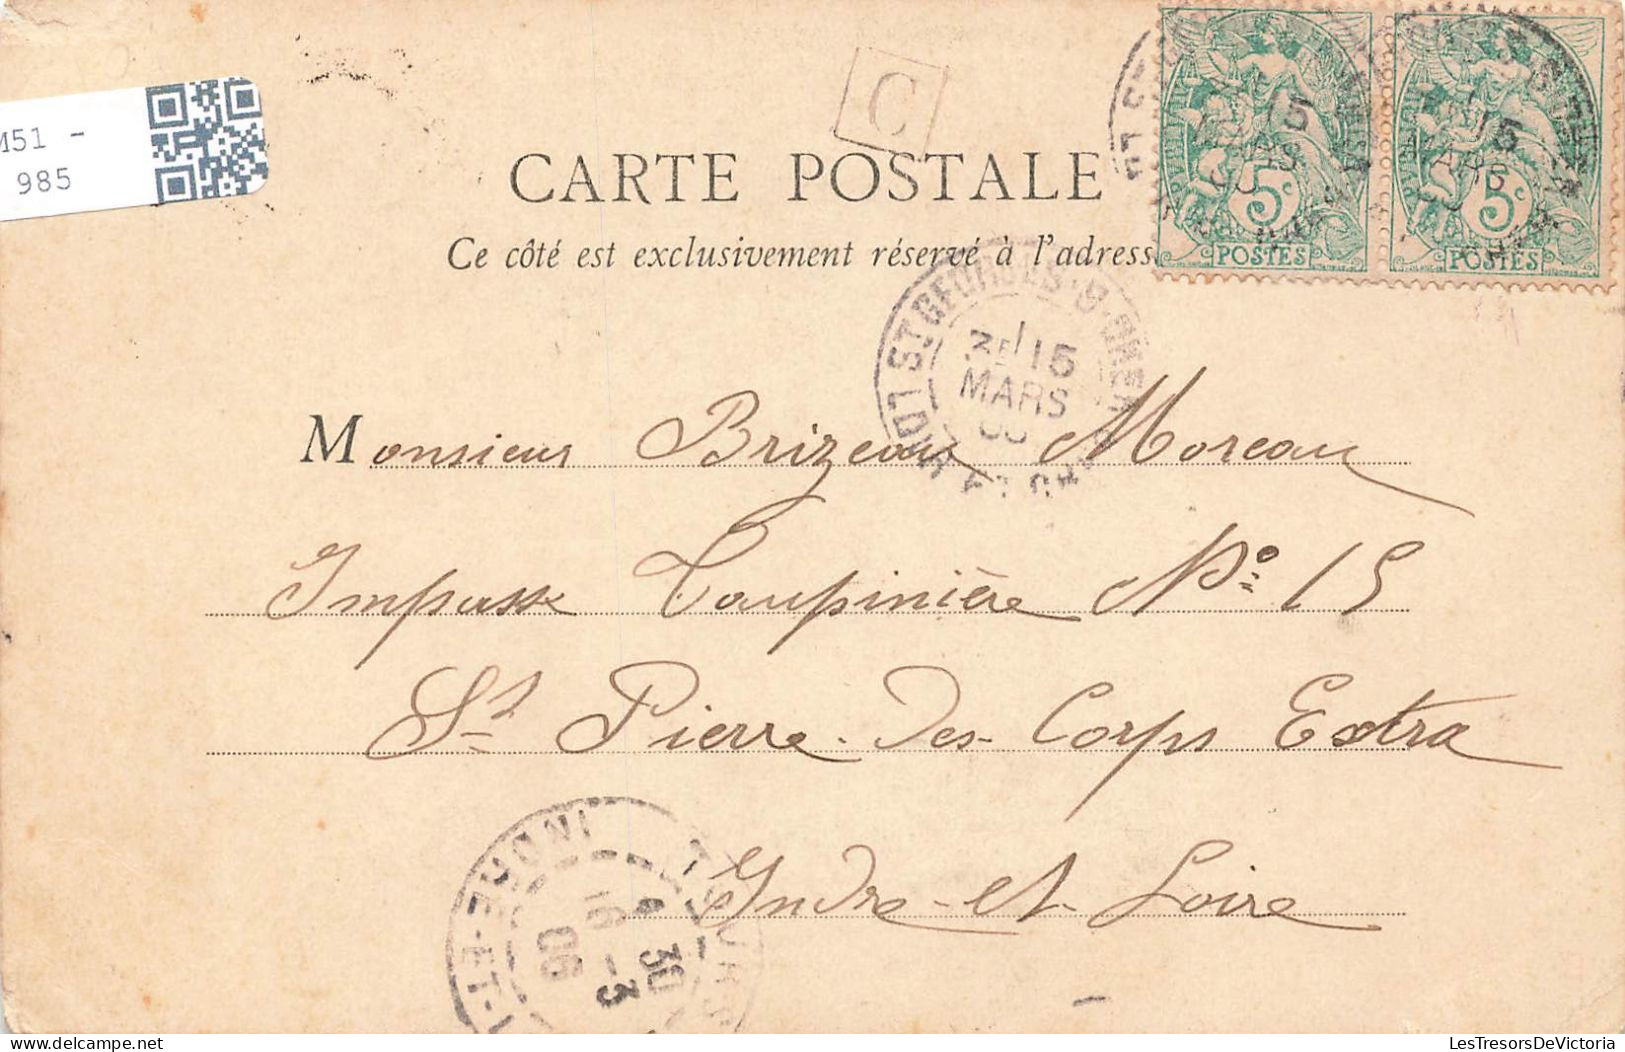 M51 -
985
C
CARTE POSTALE
Ce côté est exclusivement réservé à l'adress
5c
POSTES
5c
POSTES
15
MARS
Monsieur Brizeau Moreau
Impasse Taupinière No 15
St Pierre-Des-Corps Extra
Indre-et-Loire
INDRE-ET-L
TOURS
4 30
16 -3
06
LesTresorsDeVictoria